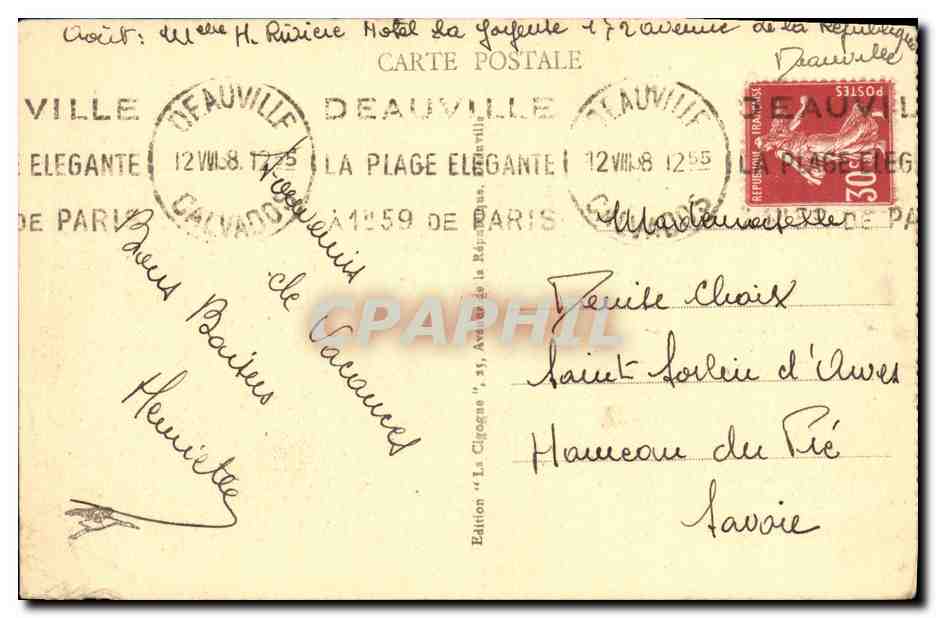 Août: Melle H. Rivière Hotel La Joyeuse 172 avenue de la République
Deauville
CARTE POSTALE
VILLE
ELEGANTE
DE PARIS
DEAUVILLE
12 VIII 38 12 55
CALVADOS
DEAUVILLE
LA PLAGE ELEGANTE
A 1H59 DE PARIS
DEAUVILLE
12 VIII 38 12 55
CALVADOS
DEAUVILLE
LA PLAGE ELEG
A 1H59 DE PAR
REPUBLIQUE FRANÇAISE
POSTES
30c
Souvenirs
de
Vacances
Bons Baisers
Henriette
Edition "La Cigogne", 25, Avenue de la République, Deauville
Mademoiselle
Denise Choix
Saint Sorlin d'Arves
Hameau du Pré
Savoie
CPAPHIL